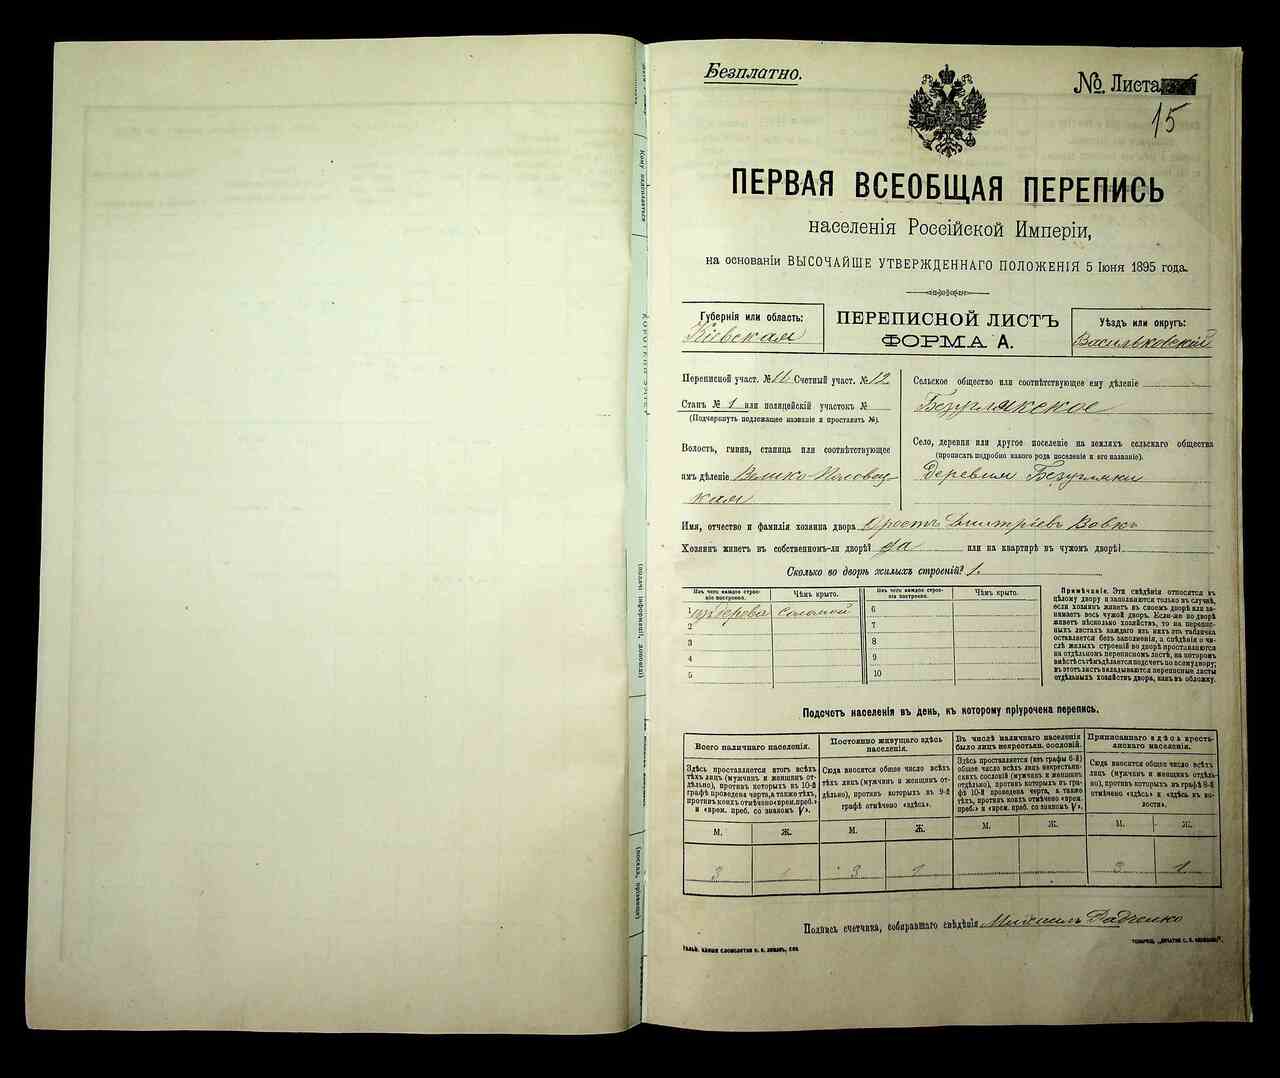 Безплатно.
№ Листа
15
ПЕРВАЯ ВСЕОБЩАЯ ПЕРЕПИСЬ
населенія Россійской Имперіи,
на основаніи ВЫСОЧАЙШЕ УТВЕРЖДЕННАГО ПОЛОЖЕНІЯ 5 Іюня 1895 года.
Губернія или область:
Кіевская
ПЕРЕПИСНОЙ ЛИСТЪ
ФОРМА А.
Уѣздъ или округъ:
Васильковскій
Переписной участ. № 11 Счетный участ. № 12
Станъ № 1 или полицейскій участокъ №
(Подчеркнуть подлежащее названіе и проставить №).
Волость, гмина, станица или соотвѣтствующее
имъ дѣленіе Велико-Половец-
кая
Сельское общество или соотвѣтствующее ему дѣленіе
Безуглякское
Село, деревня или другое поселеніе на земляхъ сельскаго общества
(прописать подробно какого рода поселеніе и его названіе).
Деревня Безугляки
Имя, отчество и фамилія хозяина двора Дмитріевъ Вовкъ
Хозяинъ живетъ въ собственномъ-ли дворѣ? да или на квартирѣ въ чужомъ дворѣ?
Сколько во дворѣ жилыхъ строеній? 1.
Изъ чего каждое строе-
ніе построено.
Чѣмъ крыто.
Изъ чего каждое строе-
ніе построено.
Чѣмъ крыто.
1 изъ дерева соломой
2
3
4
5
6
7
8
9
10
Примѣчаніе. Эти свѣдѣнія относятся къ
цѣлому двору и заполняются только въ случаѣ,
если хозяинъ живетъ въ своемъ дворѣ или за-
нимаетъ весь чужой дворъ. Если-же во дворѣ
живетъ нѣсколько хозяйствъ, то на перепис-
ныхъ листахъ каждаго изъ нихъ эта табличка
оставляется безъ заполненія, а свѣдѣнія о чи-
слѣ жилыхъ строеній во дворѣ проставляются
на отдѣльномъ переписномъ листѣ, на которомъ
вмѣстѣ съ тѣмъ дѣлается подсчетъ по всему двору;
въ этотъ листъ вкладываются переписные листы
отдѣльныхъ хозяйствъ двора, какъ въ обложку.
Подсчетъ населенія въ день, къ которому пріурочена перепись.
Всего наличнаго населенія.
Здѣсь проставляется итогъ всѣхъ
тѣхъ лицъ (мужчинъ и женщинъ от-
дѣльно), противъ которыхъ въ 10-й
графѣ проведена черта, а также тѣхъ,
противъ коихъ отмѣчено «врем. преб.»
и «врем. преб. со знакомъ V».
Постоянно живущаго здѣсь
населенія.
Сюда вносится общее число всѣхъ
тѣхъ лицъ (мужчинъ и женщинъ от-
дѣльно), противъ которыхъ въ 9-й
графѣ отмѣчено «здѣсь».
Въ числѣ наличнаго населенія
было лицъ некрестьян. сословій.
Здѣсь проставляется (изъ графы 6-й)
общее число всѣхъ лицъ некрестьян-
скихъ сословій (мужчинъ и женщинъ
отдѣльно), противъ которыхъ въ гра-
фѣ 10-й проведена черта, а также
тѣхъ, противъ коихъ отмѣчено «врем.
преб.» и «врем. преб. со знакомъ V».
Приписаннаго здѣсь кресть-
янскаго населенія.
Сюда вносится общее число всѣхъ
лицъ (мужчинъ и женщинъ отдѣль-
но), противъ которыхъ въ графѣ 8-й
отмѣчено «здѣсь» и «здѣсь къ во-
лости».
М. Ж. М. Ж. М. Ж. М. Ж.
3 1 3 1 3 1
Подпись счетчика, собиравшаго свѣдѣнія Михаилъ Радченко